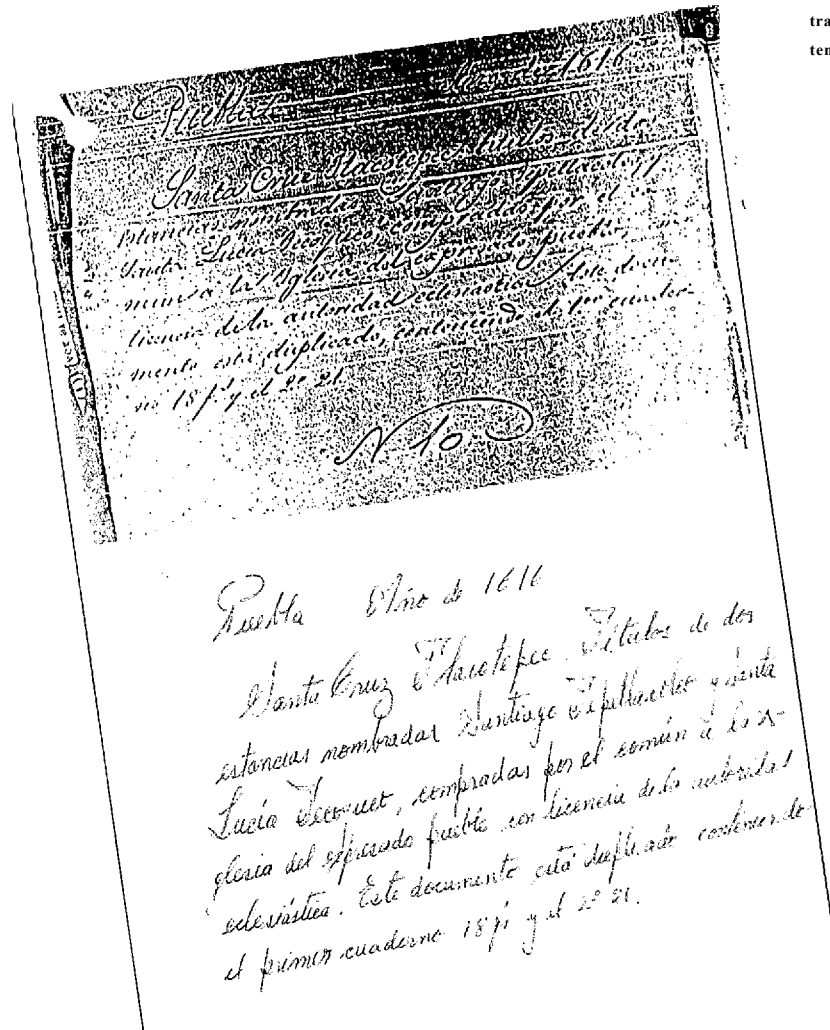 tra
ten
Puebla Año de 1616
Santa Cruz Tlacotepec Titulos de dos
estancias nombradas Santiago y
Santa Lucia compradas por el co-
mun a la Yglesia del expresado pueblo con
licencia de la autoridad eclesiastica. Este docu-
mento está duplicado, conteniendo el 1er cuader-
no 18 f.s y el 2º 21.
N 10
Puebla Año de 1616
Santa Cruz Tlacotepec Titulos de dos
estancias nombradas Santiago y Santa
Lucía, compradas por el común a la Y-
glesia del expresado pueblo con licencia de la autoridad
eclesiástica. Este documento está duplicado conteniendo
el primer cuaderno 18 fs y el 2º 21.